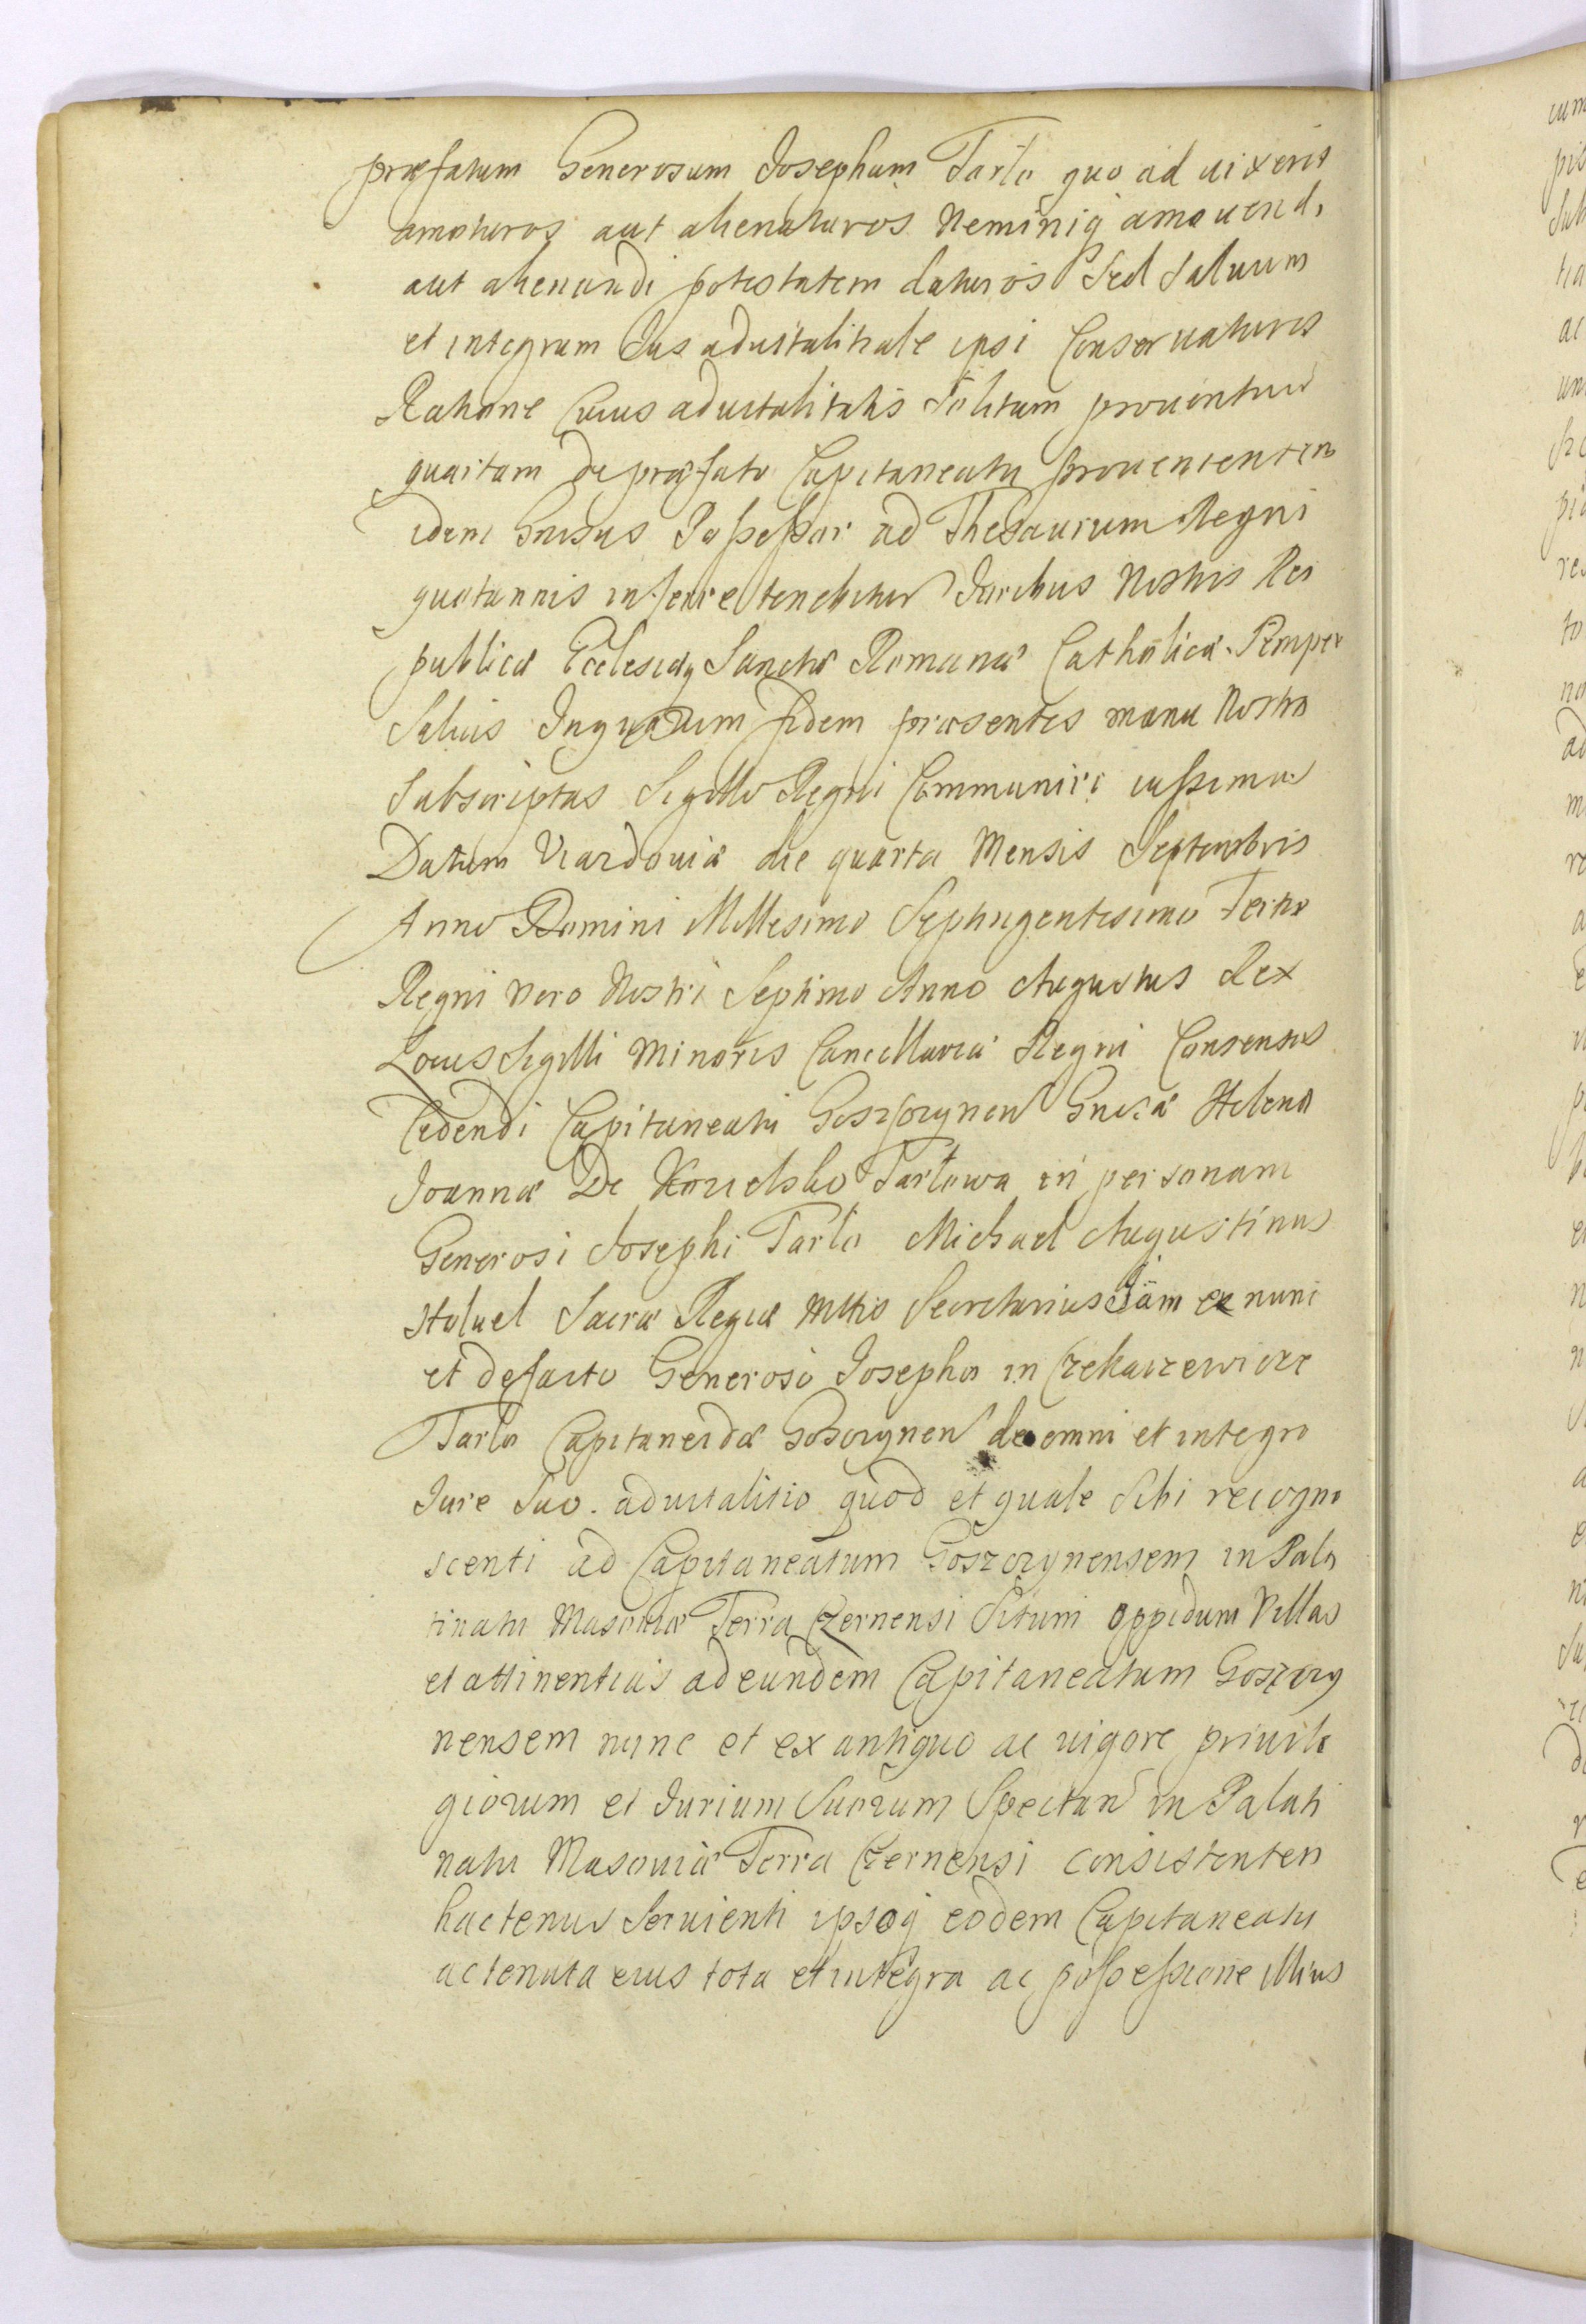 præfatum Generosum Josephum Tarło quo ad uixerit
amoturos aut alienaturos Neminiq amouendi
aut alienandi potestatem daturos Sed Saluum
et integrum Jus aduitalitiale ipsi Conseruaturos
Ratione Cuius aduitalitatis Solitam prouentuu
quartam de præfato Capitaneatu prouenienten
idem Gnrosus Possessor ad Thesaurum Regni
quotannis inferre tenebitur Juribus Nostris Rei
publicæ Ecclesiæq Sanctæ Romanæ Catholicæ Semper
Saluis Inquorum fidem præsentes manu Nostra
Subscriptas Sigillo Regni Communiri iussimus
Datum Varsouiæ die quarta Mensis Septembris
Anno Domini Millesimo Septingentesimo Tertio
Regni Vero Nostri Septimo Anno Augustus Rex
Locus Sigilli Minoris Cancellariæ Regni Consensus
Cedendi Capitaneatu Goszczynen Gnosæ Helenæ
Joannæ De Tarłowa in personam
Generosi Josephi Tarło Michael Augustinus
Sacræ Regiæ Mttis Secretarius Jam ex nunc
et defacto Generoso Josepho in Czekarzewice
Tarło Capitaneidæ Goszczynen de omni et integro
Jure Suo aduitalitio quod et quale Sibi recogno
scenti ad Capitaneatum Goszczynensem in Pala
tinatu Masouiæ Terra Czernensi Situm oppidum Villas
et attinentias ad eundem Capitaneatum Goszczy
nensem nunc et ex antiquo ac uigore priuile
giorum et Jurium Suorum Spectan in Palati
natu Masouiæ Terra Czernensi consistenten
hactenus Seruienti ipsoq eodem Capitaneatu
ac tenuta eius tota et integra ac possessione illius